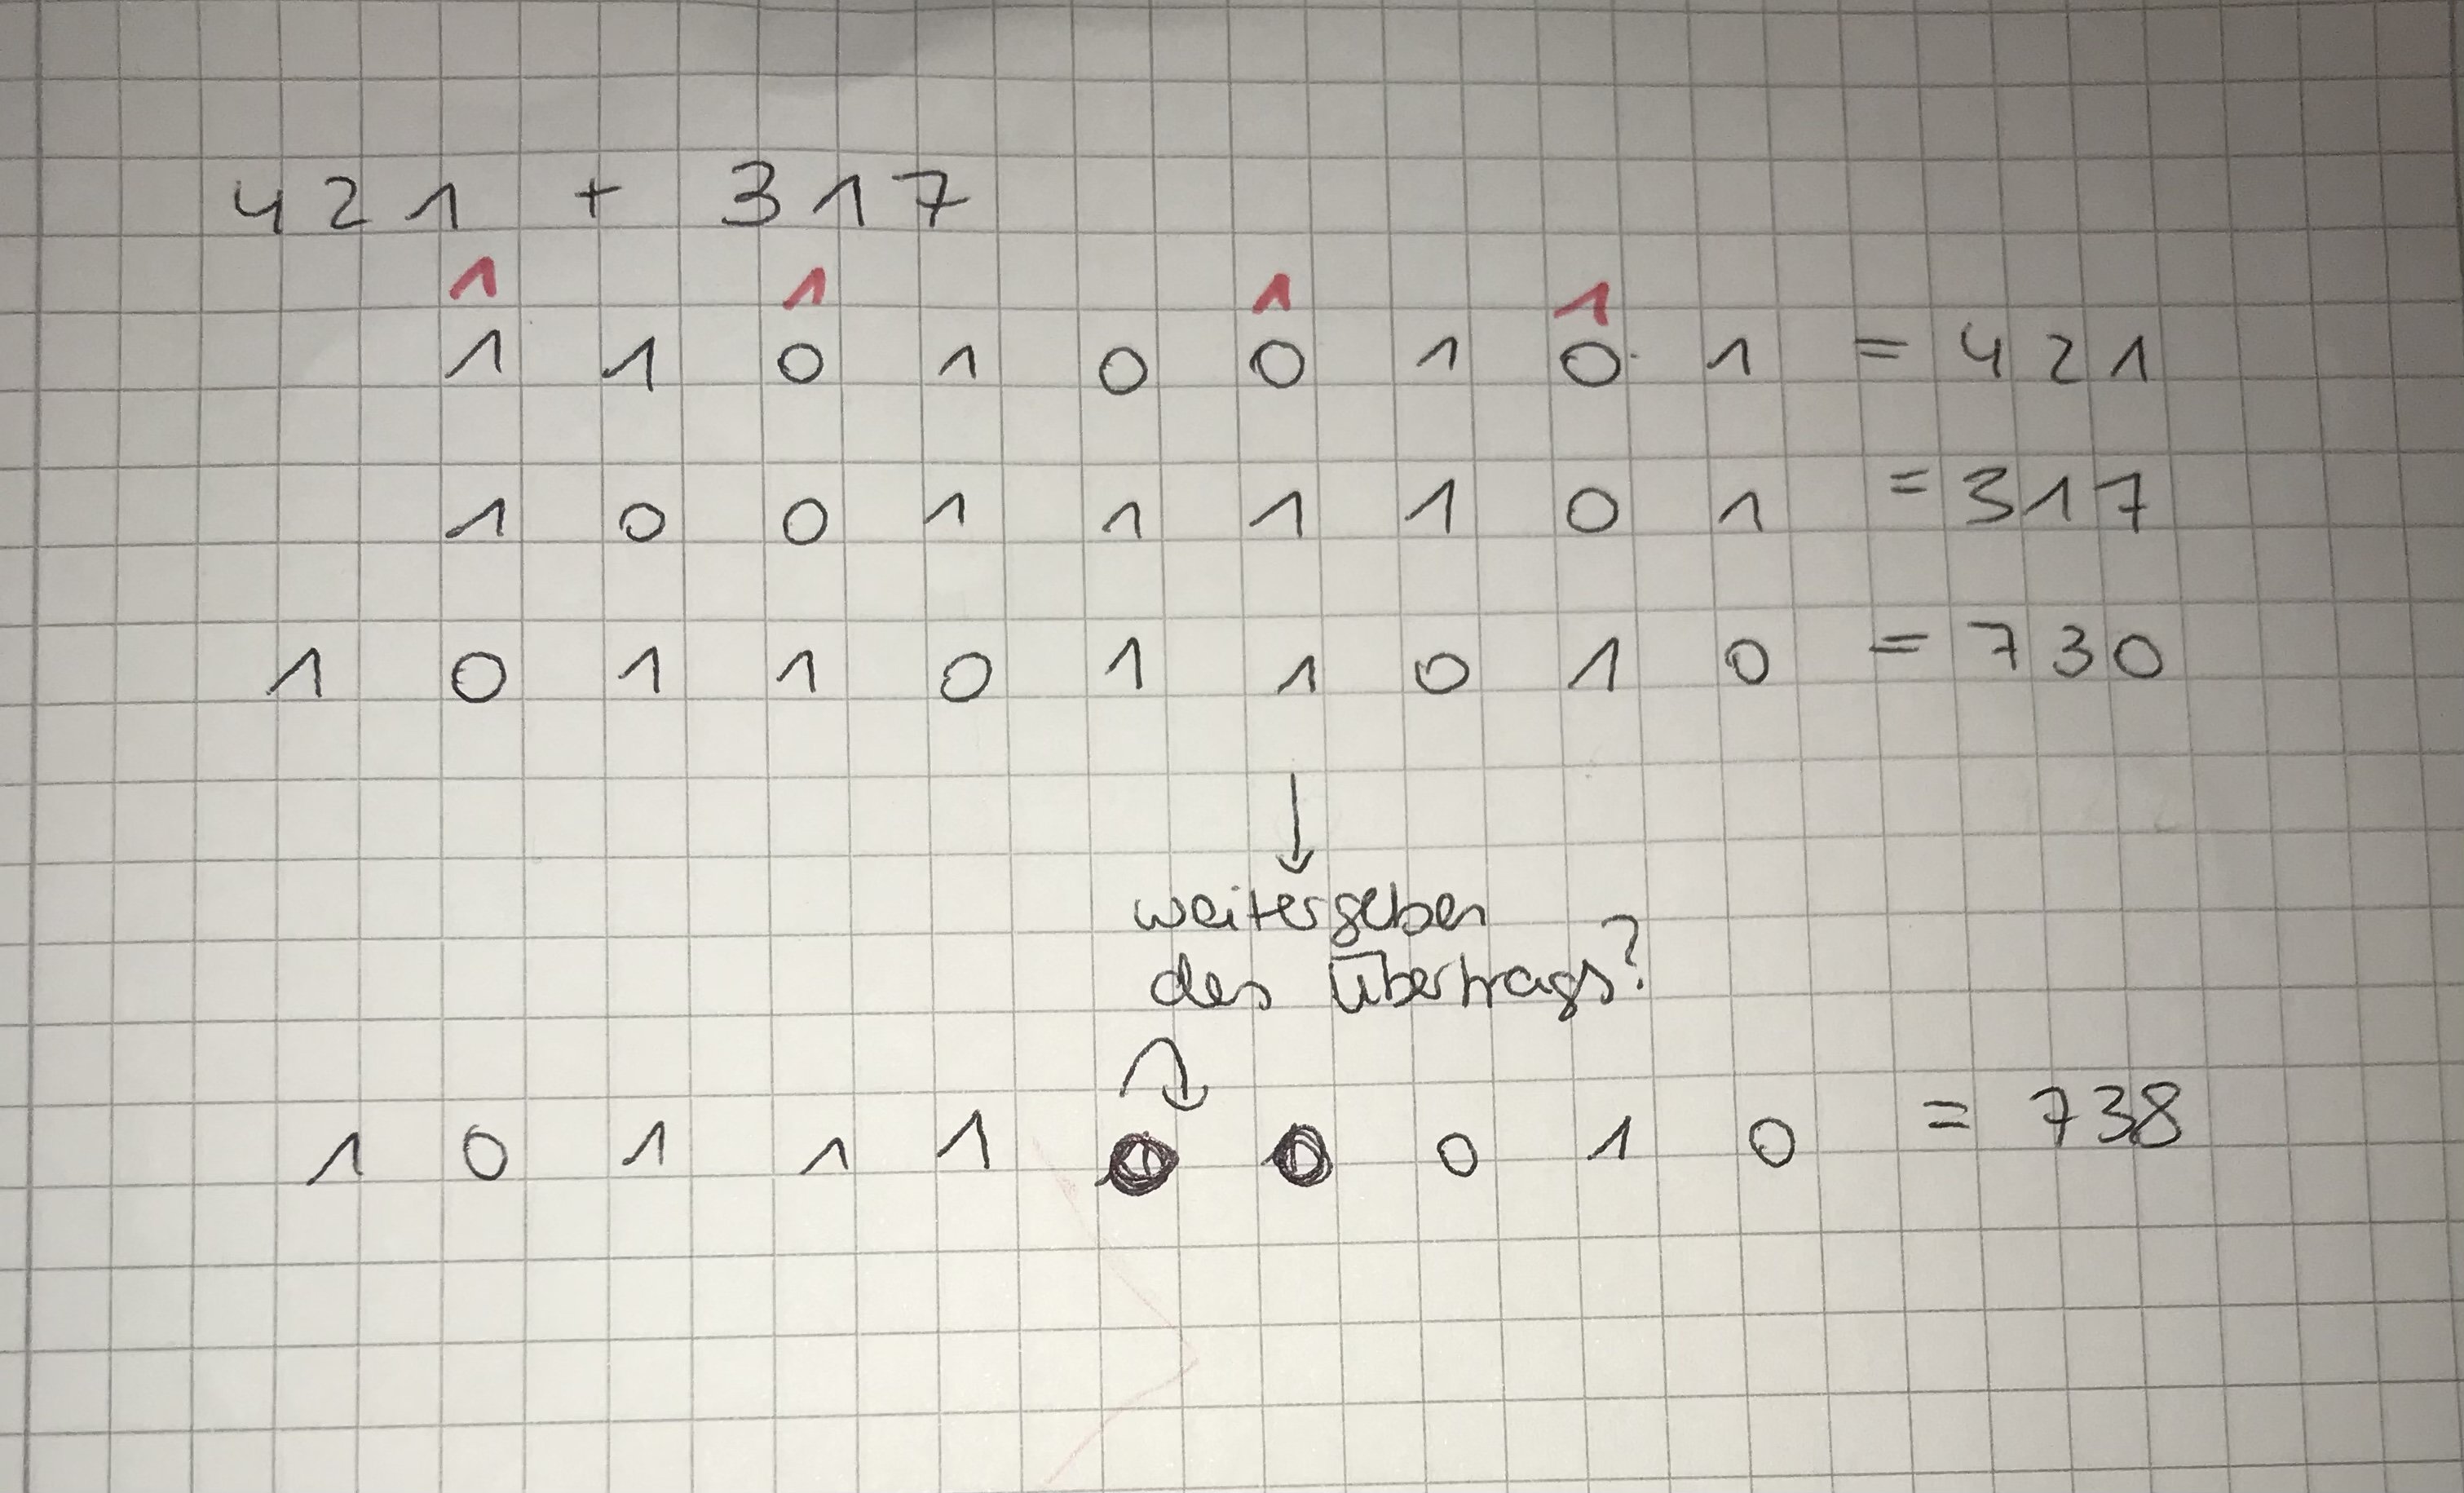 421 + 317
1 1 1 1
1 1 0 1 0 0 1 0 1 = 421
1 0 0 1 1 1 1 0 1 = 317
1 0 1 1 0 1 1 0 1 0 = 730
weitergeben
des Übertrags?
1 0 1 1 1 0 0 0 1 0 = 738